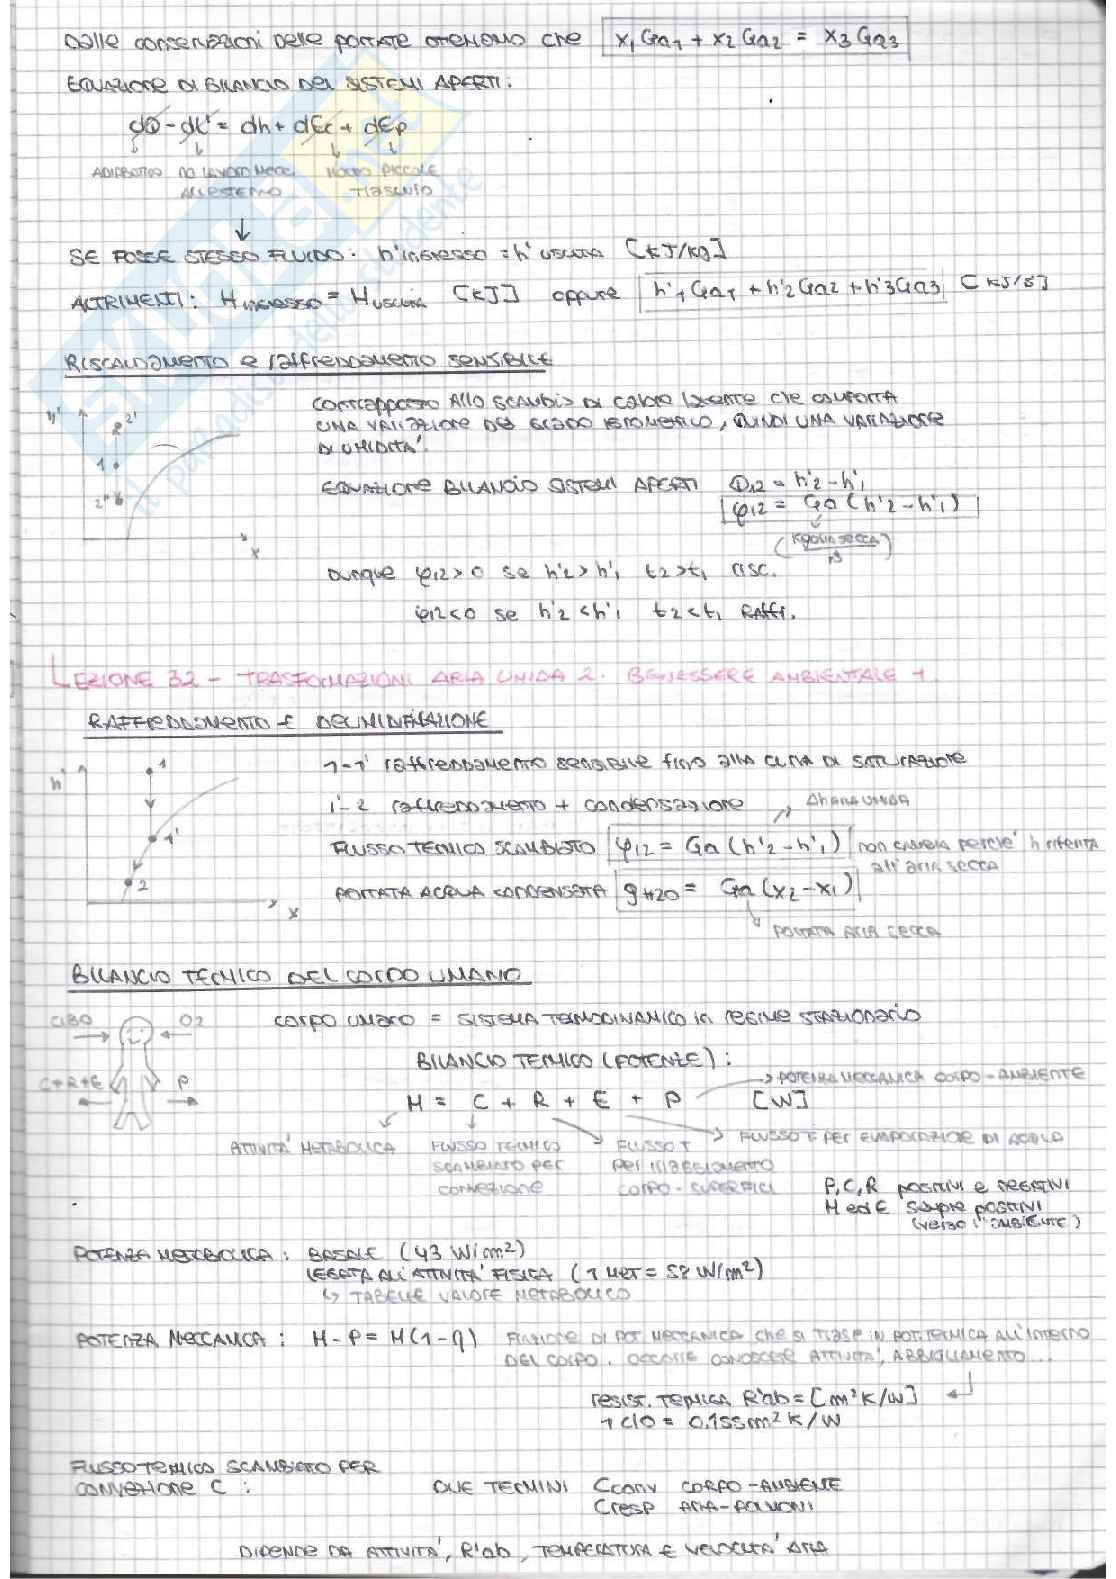 Dalle conservazioni delle portate otteniamo che x₁Ga₁ + x₂Ga₂ = x₃Ga₃
EQUAZIONE DI BILANCIO DEI SISTEMI APERTI:
dQ - dL' = dh + dEc + dEp
ADIABATICO NO LAVORO MECC. ALL'ESTERNO MOLTO PICCOLE TRASCURO
SE FOSSE STESSO FLUIDO: h'ingresso = h'uscita [kJ/kg]
ALTRIMENTI: Hingresso = Huscita [kJ] oppure h'₁Ga₁ + h'₂Ga₂ + h'₃Ga₃ [kJ/s]
RISCALDAMENTO e raffreddamento SENSIBILE
h' 2' 1 2" x
contrapposto allo scambio di calore latente che comporta
UNA VARIAZIONE DEL GRADO IGROMETRICO, QUINDI UNA VARIAZIONE
DI UMIDITA'.
EQUAZIONE BILANCIO SISTEMI APERTI Q₁₂ = h'₂ - h'₁
φ₁₂ = Ga (h'₂ - h'₁)
(kg aria secca / s)
Dunque φ₁₂ > 0 se h'₂ > h'₁ t₂ > t₁ risc.
φ₁₂ < 0 se h'₂ < h'₁ t₂ < t₁ Raffr.
LEZIONE 32 - TRASFORMAZIONI ARIA UMIDA 2. BENESSERE AMBIENTALE 1.
RAFFREDDAMENTO E DEUMIDIFICAZIONE
h' 1 1' 2 x
1-1' raffreddamento sensibile fino alla curva di saturazione
1'-2 raffreddamento + condensazione
Δh aria umida
FLUSSO TERMICO SCAMBIATO φ₁₂ = Ga (h'₂ - h'₁) non cambia perche' h riferita
all'aria secca
PORTATA ACQUA CONDENSATA gH₂O = Ga (x₂ - x₁)
PORTATA ARIA SECCA
BILANCIO TERMICO DEL CORPO UMANO
CIBO O2 C+R+E P
corpo umano = SISTEMA TERMODINAMICO in regime STAZIONARIO
BILANCIO TERMICO (POTENZE):
POTENZA MECCANICA CORPO-AMBIENTE
M = C + R + E + P [W]
ATTIVITA' METABOLICA
FLUSSO TERMICO
SCAMBIATO PER
CONVEZIONE
FLUSSO T
per IRRAGGIAMENTO
CORPO-SUPERFICI
FLUSSO T PER EVAPORAZIONE DI ACQUA
P, C, R positivi e negativi
M ed E sempre positivi
(verso l'AMBIENTE)
POTENZA METABOLICA: BASALE (43 W/m²)
LEGATA ALL'ATTIVITA' FISICA (1 MET = 58 W/m²)
↳ TABELLE VALORE METABOLICO
POTENZA MECCANICA: M - P = M(1-η) FRAZIONE DI POT MECCANICA che si trasf in pot termica all'interno
DEL CORPO. OCCORRE CONOSCERE ATTIVITA', ABBIGLIAMENTO...
resist. termica R'ab = [m²K/W]
1 clo = 0.155 m² K/W
FLUSSO TERMICO SCAMBIATO PER
CONVEZIONE C:
DUE TERMINI Cconv CORPO-AMBIENTE
Cresp ARIA-POLMONI
DIPENDE DA ATTIVITA', R'ab, TEMPERATURA E VELOCITA' ARIA